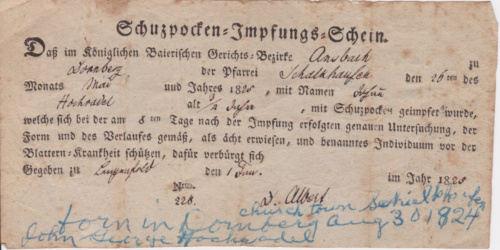 Schuzpocken-Impfungs-Schein.
Daß im Königlichen Baierischen Gerichts-Bezirke Ansbach zu
Dornberg der Pfarrei Schalkhausen den 26ten des
Monats Mai und Jahres 1828, mit Namen
Hochradel alt 3/4, mit Schuzpocken geimpfet wurde,
welche sich bei der am 8ten Tage nach der Impfung erfolgten genauen Untersuchung, der
Form und des Verlaufes gemäß, als ächt erwiesen, und benanntes Individuum vor der
Blattern-Krankheit schützen, dafür verbürgt sich
Gegeben zu den 1 Jun. im Jahr 1828
Nrum.
228. D. Albert
church town
born in Dornberg Aug 30 1824
John George Hochradel